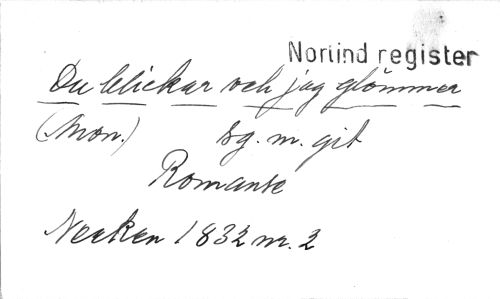 Norlind register
Du blickar och jag glömmer
(Anon.) sg. m. git
Romanse
Necken 1832 nr. 2